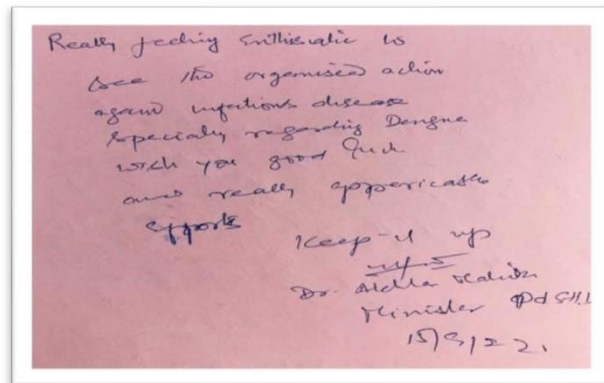 Really feeling Enthisiatic to
see the organised action
against infectious disease
specialy regarding Dengue
wish you good luck
and really appericate
efforts
Keep-it up
Dr.
Minister
15/9/22.